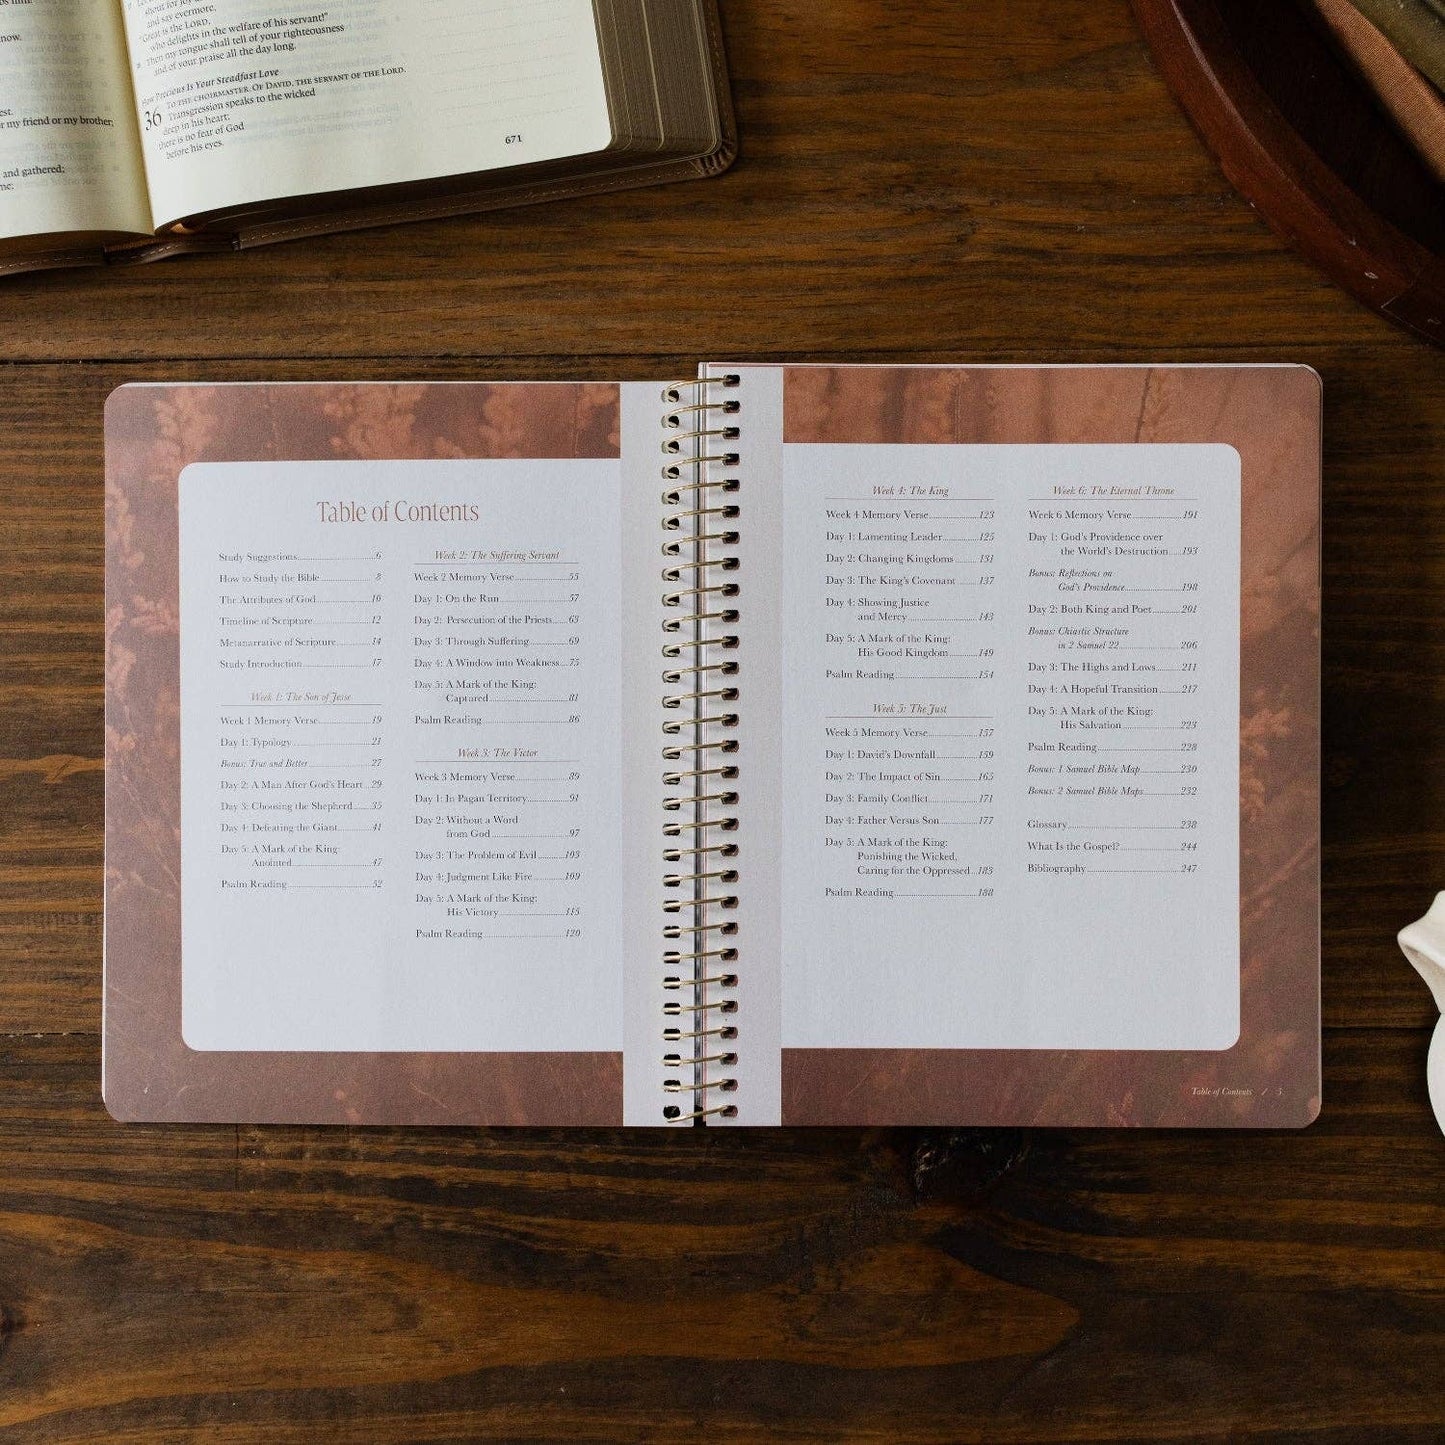 now.
est.
or my friend or my brother;
and gathered;
me:
and say evermore,
"Great is the LORD,
who delights in the welfare of his servant!"
Then my tongue shall tell of your righteousness
and of your praise all the day long.
How Precious Is Your Steadfast Love
36 TO THE CHOIRMASTER. OF DAVID, THE SERVANT OF THE LORD.
Transgression speaks to the wicked
deep in his heart;
there is no fear of God
before his eyes.
671
Table of Contents
Study Suggestions 6
How to Study the Bible 8
The Attributes of God 10
Timeline of Scripture 12
Metanarrative of Scripture 14
Study Introduction 17
Week 1: The Son of Jesse
Week 1 Memory Verse 19
Day 1: Typology 21
Bonus: True and Better 27
Day 2: A Man After God's Heart 29
Day 3: Choosing the Shepherd 35
Day 4: Defeating the Giant 41
Day 5: A Mark of the King:
Anointed 47
Psalm Reading 52
Week 2: The Suffering Servant
Week 2 Memory Verse 55
Day 1: On the Run 57
Day 2: Persecution of the Priests 63
Day 3: Through Suffering 69
Day 4: A Window into Weakness 75
Day 5: A Mark of the King:
Captured 81
Psalm Reading 86
Week 3: The Victor
Week 3 Memory Verse 89
Day 1: In Pagan Territory 91
Day 2: Without a Word
from God 97
Day 3: The Problem of Evil 103
Day 4: Judgment Like Fire 109
Day 5: A Mark of the King:
His Victory 115
Psalm Reading 120
Week 4: The King
Week 4 Memory Verse 123
Day 1: Lamenting Leader 125
Day 2: Changing Kingdoms 131
Day 3: The King's Covenant 137
Day 4: Showing Justice
and Mercy 143
Day 5: A Mark of the King:
His Good Kingdom 149
Psalm Reading 154
Week 5: The Just
Week 5 Memory Verse 157
Day 1: David's Downfall 159
Day 2: The Impact of Sin 165
Day 3: Family Conflict 171
Day 4: Father Versus Son 177
Day 5: A Mark of the King:
Punishing the Wicked,
Caring for the Oppressed 183
Psalm Reading 188
Week 6: The Eternal Throne
Week 6 Memory Verse 191
Day 1: God's Providence over
the World's Destruction 193
Bonus: Reflections on
God's Providence 198
Day 2: Both King and Poet 201
Bonus: Chiastic Structure
in 2 Samuel 22 206
Day 3: The Highs and Lows 211
Day 4: A Hopeful Transition 217
Day 5: A Mark of the King:
His Salvation 223
Psalm Reading 228
Bonus: 1 Samuel Bible Map 230
Bonus: 2 Samuel Bible Maps 232
Glossary 238
What Is the Gospel? 244
Bibliography 247
Table of Contents / 5